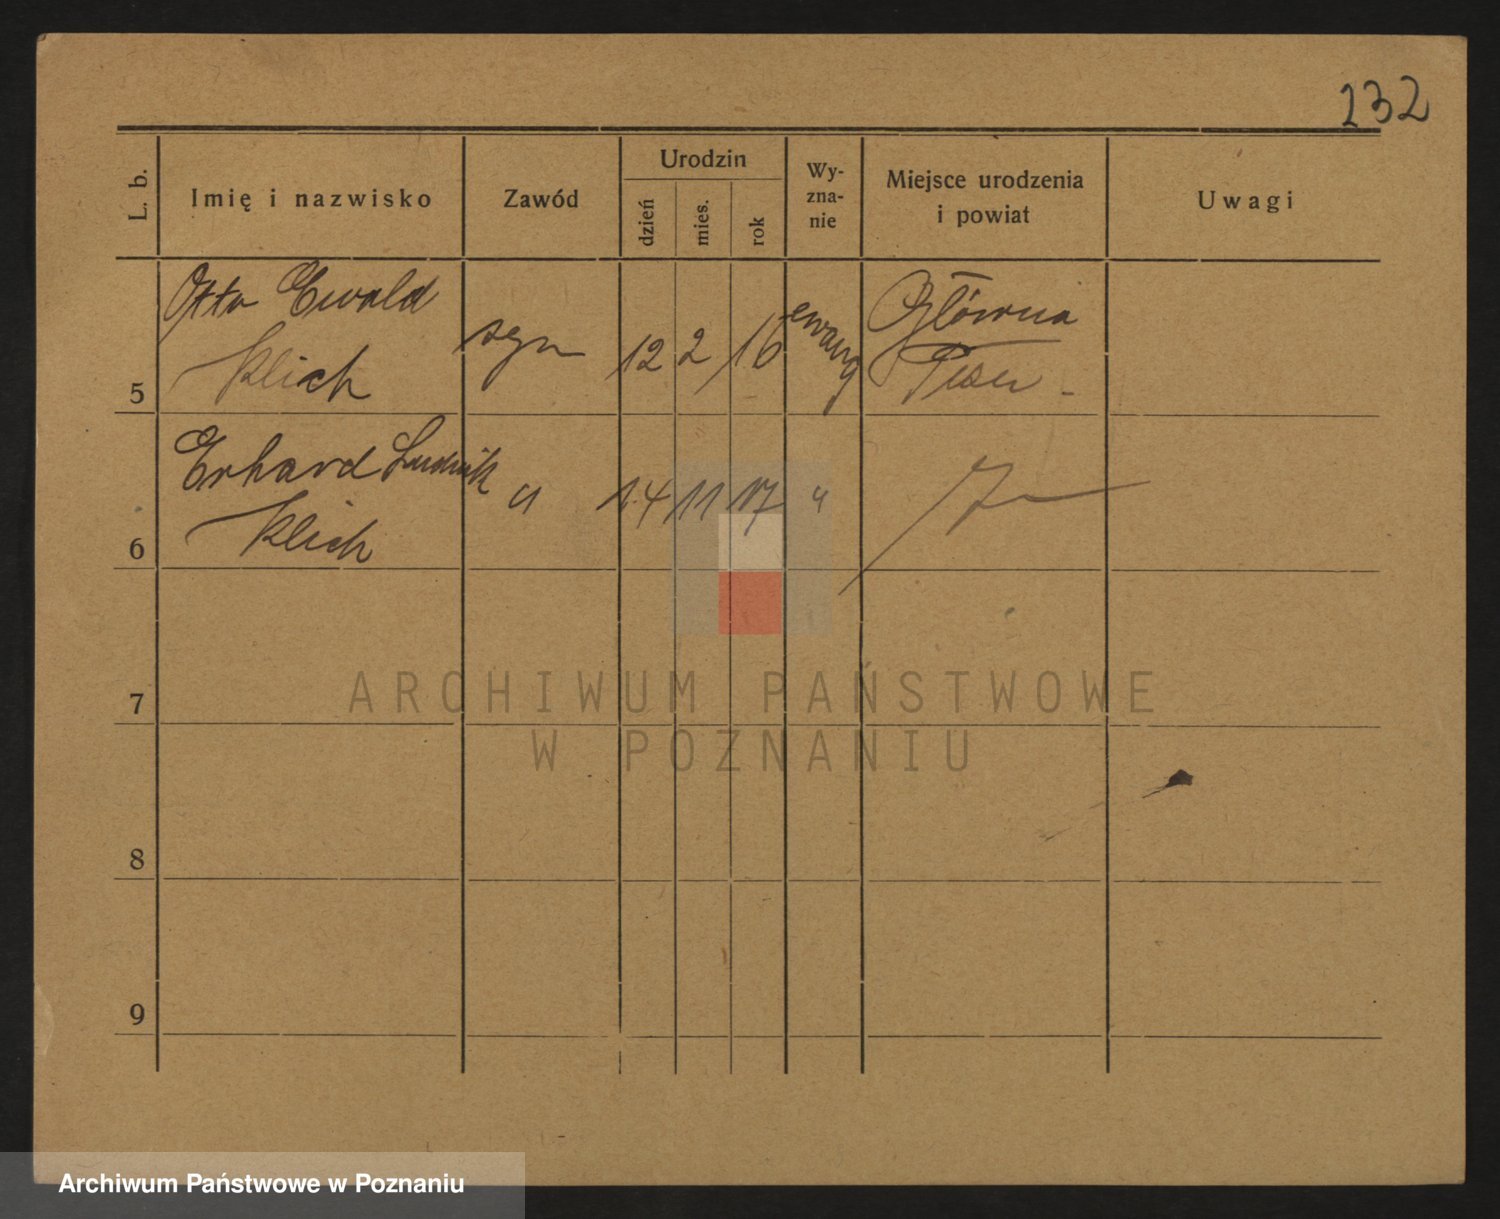 232
L. b.
Imię i nazwisko
Zawód
Urodzin
dzień
mies.
rok
Wy-
zna-
nie
Miejsce urodzenia
i powiat
Uwagi
Otto Ewald
Klich
syn
12 2 16
ewang
Główna
5
Erhard Ludwik
Klich
" 14 11 17 "
6
7
8
9
ARCHIWUM PAŃSTWOWE
W POZNANIU
Archiwum Państwowe w Poznaniu